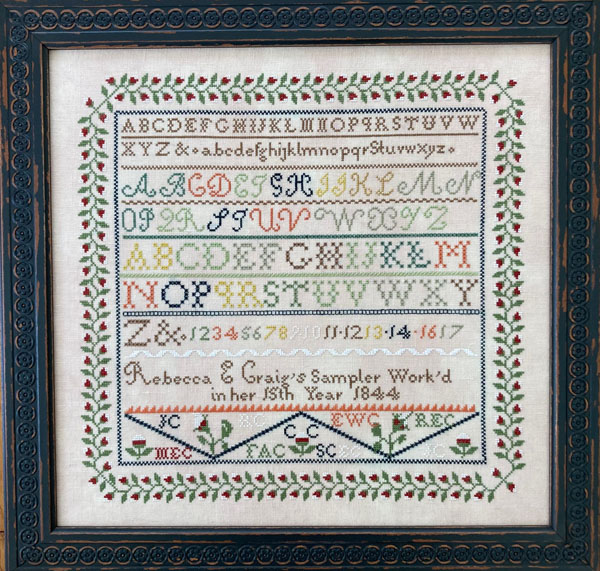 ABCDEFGHIJKLMNOPQRSTUVW
XYZ & abcdefghijklmnopqrstuvwxyz
ABCDEFGHIJKLMN
OPQRSTUVWXYZ
ABCDEFGHIJKLM
NOPQRSTUVWXY
Z& 1234567891011·12 13·14· 1617
Rebecca E Craig's Sampler Work'd
in her 15th Year 1844
JC EWC REC
C C
MEC FAC SC